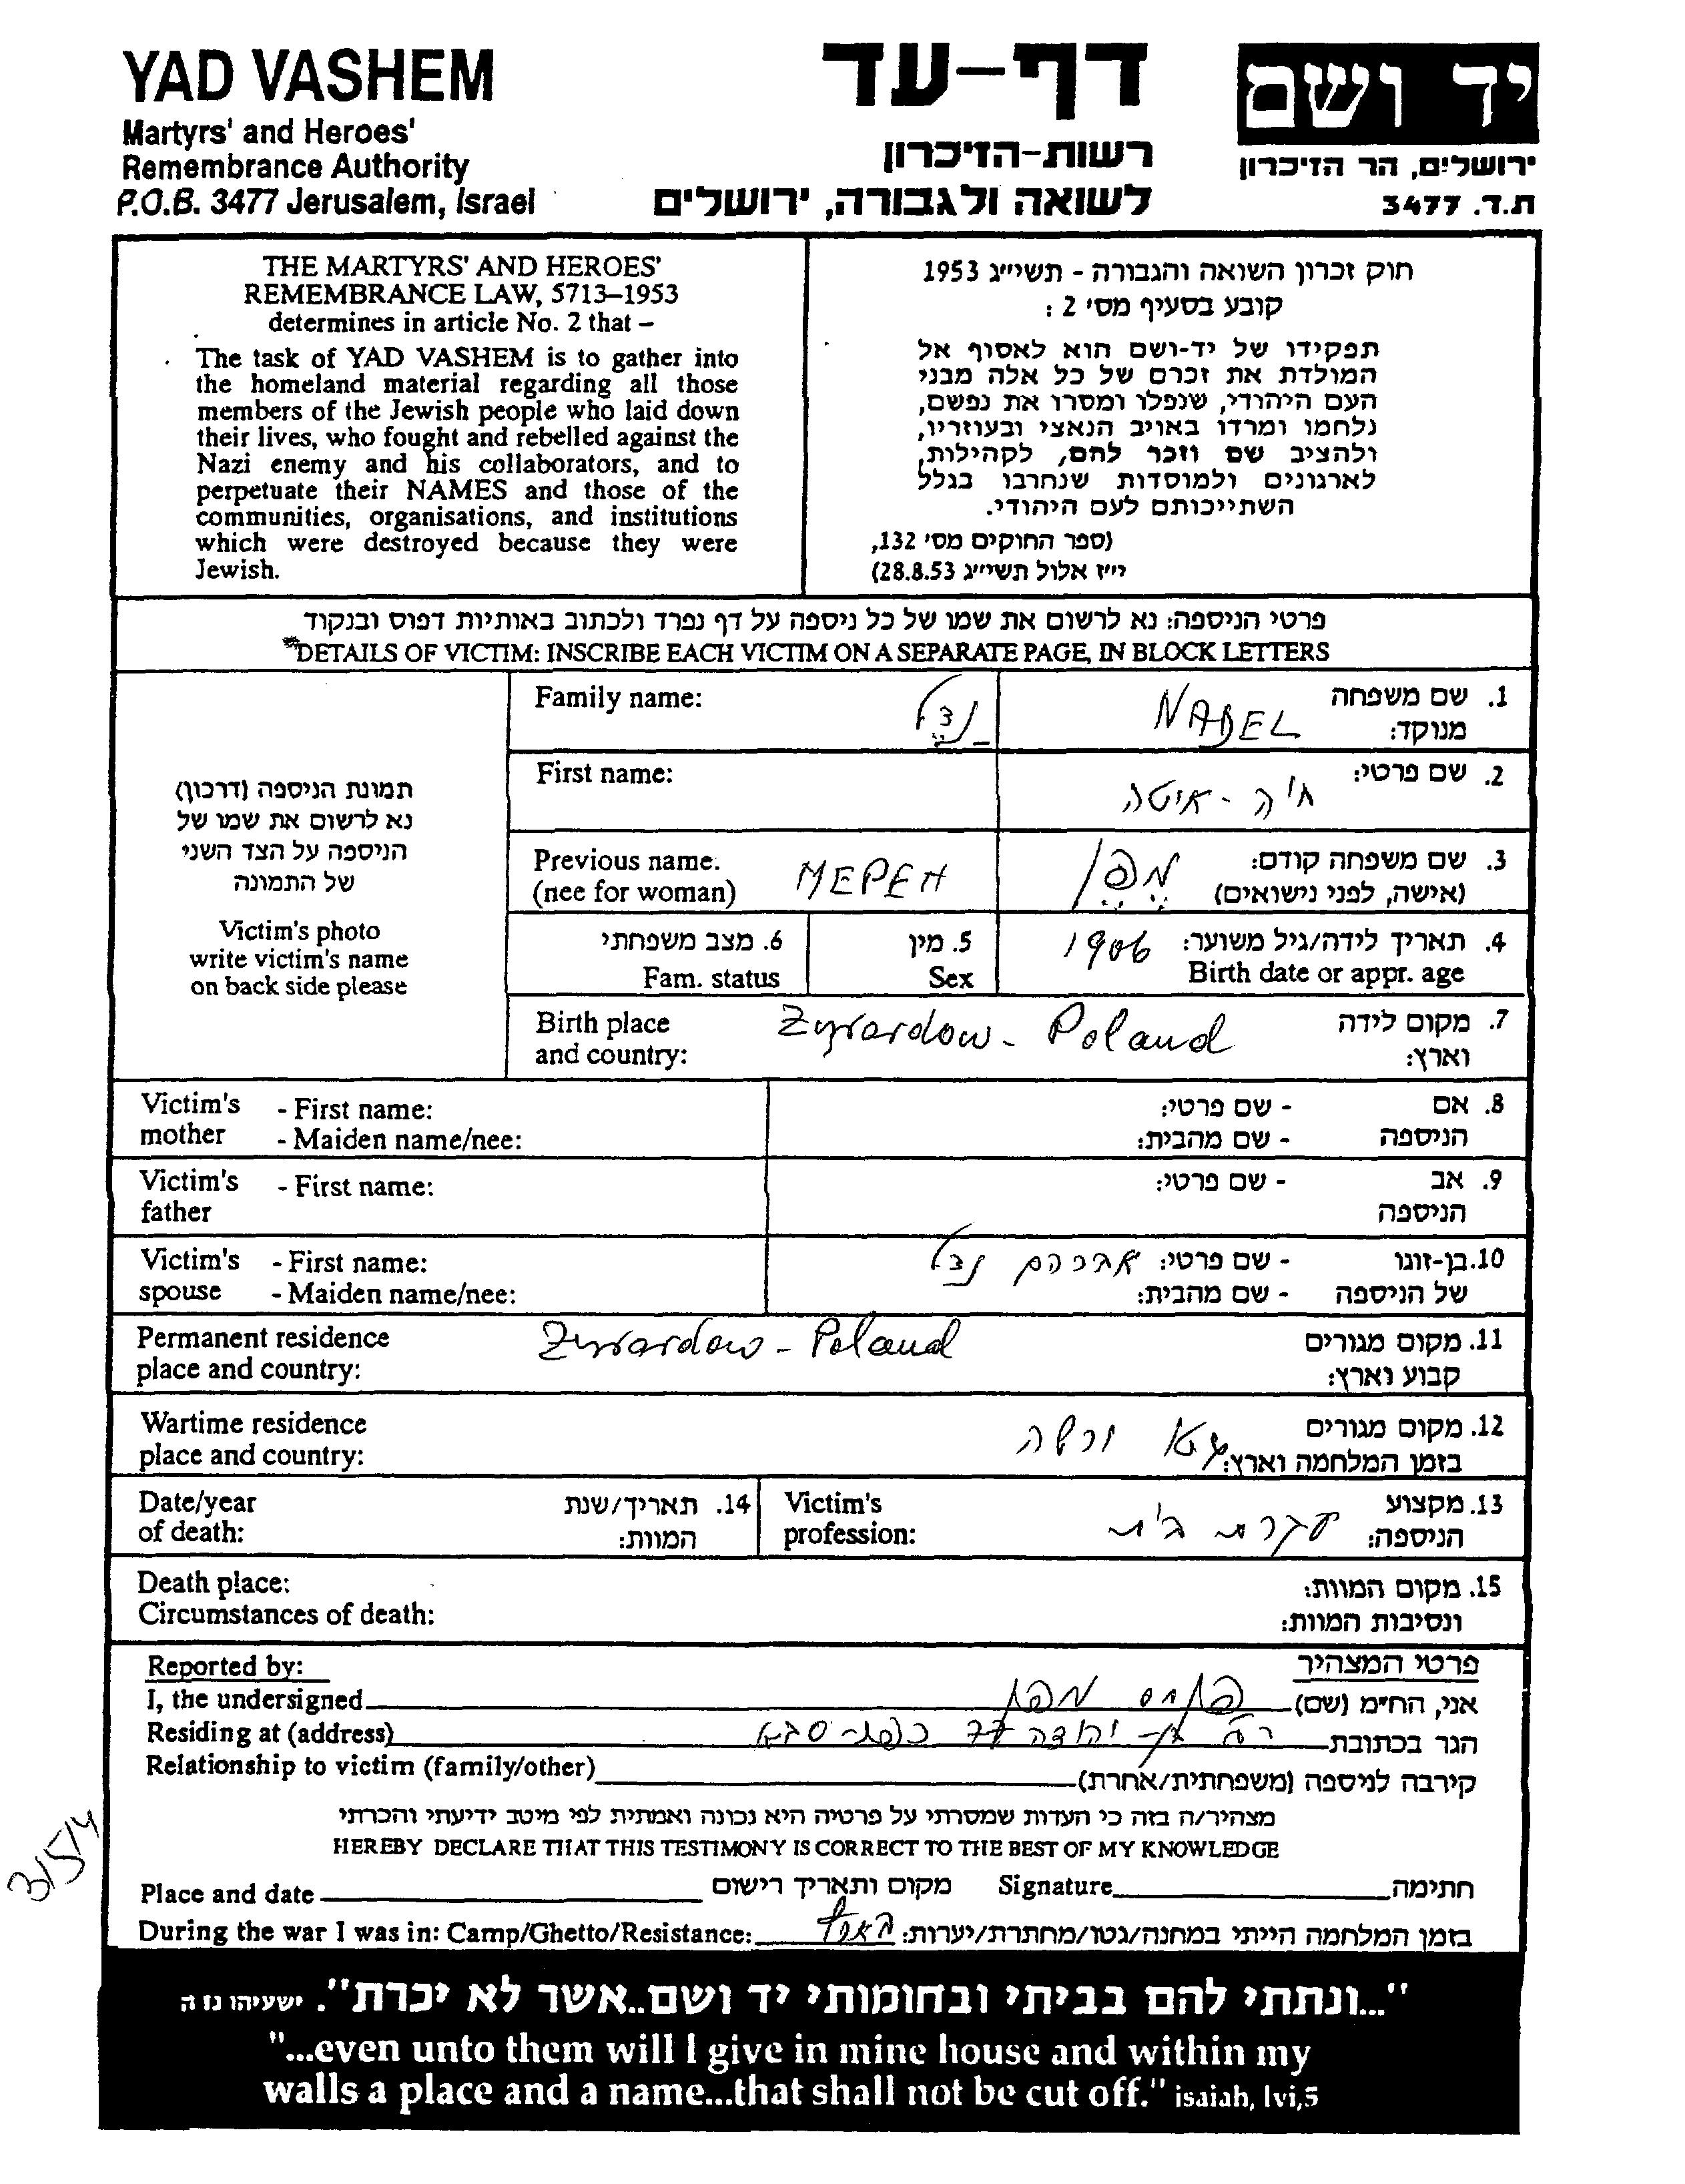 YAD VASHEM
Martyrs' and Heroes'
Remembrance Authority
P.O.B. 3477 Jerusalem, Israel
דף-עד
רשות-הזיכרון
לשואה ולגבורה, ירושלים
יד ושם
ירושלים, הר הזיכרון
ת.ד. 3477
THE MARTYRS' AND HEROES'
REMEMBRANCE LAW, 5713–1953
determines in article No. 2 that –
The task of YAD VASHEM is to gather into
the homeland material regarding all those
members of the Jewish people who laid down
their lives, who fought and rebelled against the
Nazi enemy and his collaborators, and to
perpetuate their NAMES and those of the
communities, organisations, and institutions
which were destroyed because they were
Jewish.
חוק זכרון השואה והגבורה - תשי״ג 1953
קובע בסעיף מס׳ 2 :
תפקידו של יד-ושם הוא לאסוף אל
המולדת את זכרם של כל אלה מבני
העם היהודי, שנפלו ומסרו את נפשם,
נלחמו ומרדו באויב הנאצי ובעוזריו,
ולהציב שם וזכר להם, לקהילות,
לארגונים ולמוסדות שנחרבו בגלל
השתייכותם לעם היהודי.
(ספר החוקים מס׳ 132,
י״ז אלול תשי״ג 28.8.53)
פרטי הניספה: נא לרשום את שמו של כל ניספה על דף נפרד ולכתוב באותיות דפוס ובנקוד
DETAILS OF VICTIM: INSCRIBE EACH VICTIM ON A SEPARATE PAGE, IN BLOCK LETTERS
תמונת הניספה (דרכון)
נא לרשום את שמו של
הניספה על הצד השני
של התמונה
Victim's photo
write victim's name
on back side please
Family name: נבל NABEL 1. שם משפחה
מנוקד:
First name: חיה - איטה 2. שם פרטי:
Previous name. 3. שם משפחה קודם:
(nee for woman) MEPEH מפן (אישה, לפני נישואים)
6. מצב משפחתי 5. מין 1906 4. תאריך לידה/גיל משוער:
Fam. status Sex Birth date or appr. age
Birth place Zyrardow - Poland 7. מקום לידה
and country: וארץ:
Victim's - First name: - שם פרטי: 8. אם
mother - Maiden name/nee: - שם מהבית: הניספה
Victim's - First name: - שם פרטי: 9. אב
father הניספה
Victim's - First name: - שם פרטי: אברהם נבל 10.בן-זוגו
spouse - Maiden name/nee: - שם מהבית: של הניספה
Permanent residence Zyrardow - Poland 11. מקום מגורים
place and country: קבוע וארץ:
Wartime residence 12. מקום מגורים
place and country: בזמן המלחמה וארץ: גטו ורשה
Date/year 14. תאריך/שנת Victim's 13. מקצוע
of death: המוות: profession: הניספה: עקרת בית
Death place: 15. מקום המוות:
Circumstances of death: ונסיבות המוות:
Reported by: פרטי המצהיר
I, the undersigned פנחס מפן אני, החי״מ (שם)
Residing at (address) רח בן-יהודה 77 כפר-סבא הגר בכתובת
Relationship to victim (family/other) קירבה לניספה (משפחתית/אחרת)
מצהיר/ה בזה כי העדות שמסרתי על פרטיה היא נכונה ואמתית לפי מיטב ידיעתי והכרתי
HEREBY DECLARE THAT THIS TESTIMONY IS CORRECT TO THE BEST OF MY KNOWLEDGE
Place and date מקום ותאריך רישום Signature חתימה
During the war I was in: Camp/Ghetto/Resistance: בזמן המלחמה הייתי במחנה/גטו/מחתרת/יערות:
"...ונתתי להם בביתי ובחומותי יד ושם..אשר לא יכרת". ישעיהו נו ה
"...even unto them will I give in mine house and within my
walls a place and a name...that shall not be cut off." isaiah, lvi,5